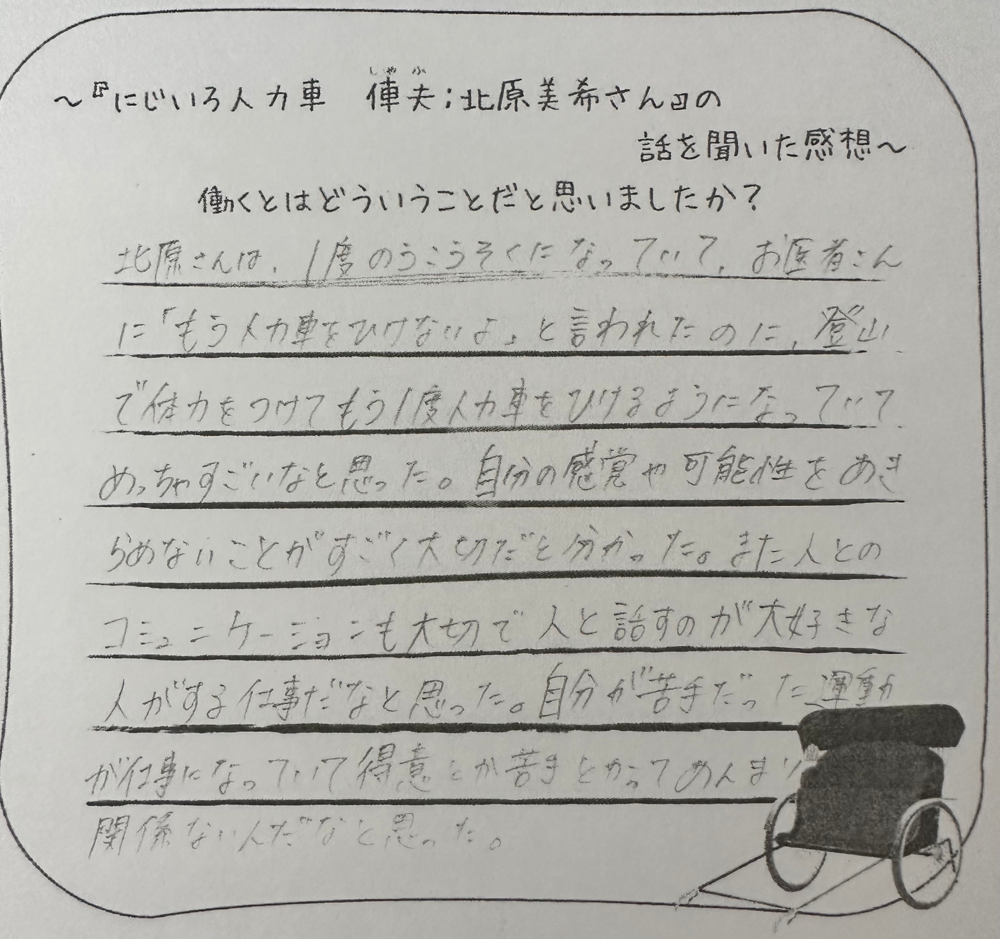 ～『にじいろ人力車　俥夫:北原美希さん』の
話を聞いた感想～
働くとはどういうことだと思いましたか?
北原さんは、1度のうこうそくになっていて、お医者さん
に「もう人力車をひけないよ」と言われたのに、登山
で体力をつけてもう1度人力車をひけるようになっていて
めっちゃすごいなと思った。自分の感覚や可能性をあき
らめないことがすごく大切だと分かった。また人との
コミュニケーションも大切で人と話すのが大好きな
人がする仕事だなと思った。自分が苦手だった運動
が仕事になっていて得意とか苦手とかってあんまり
関係ないんだなと思った。